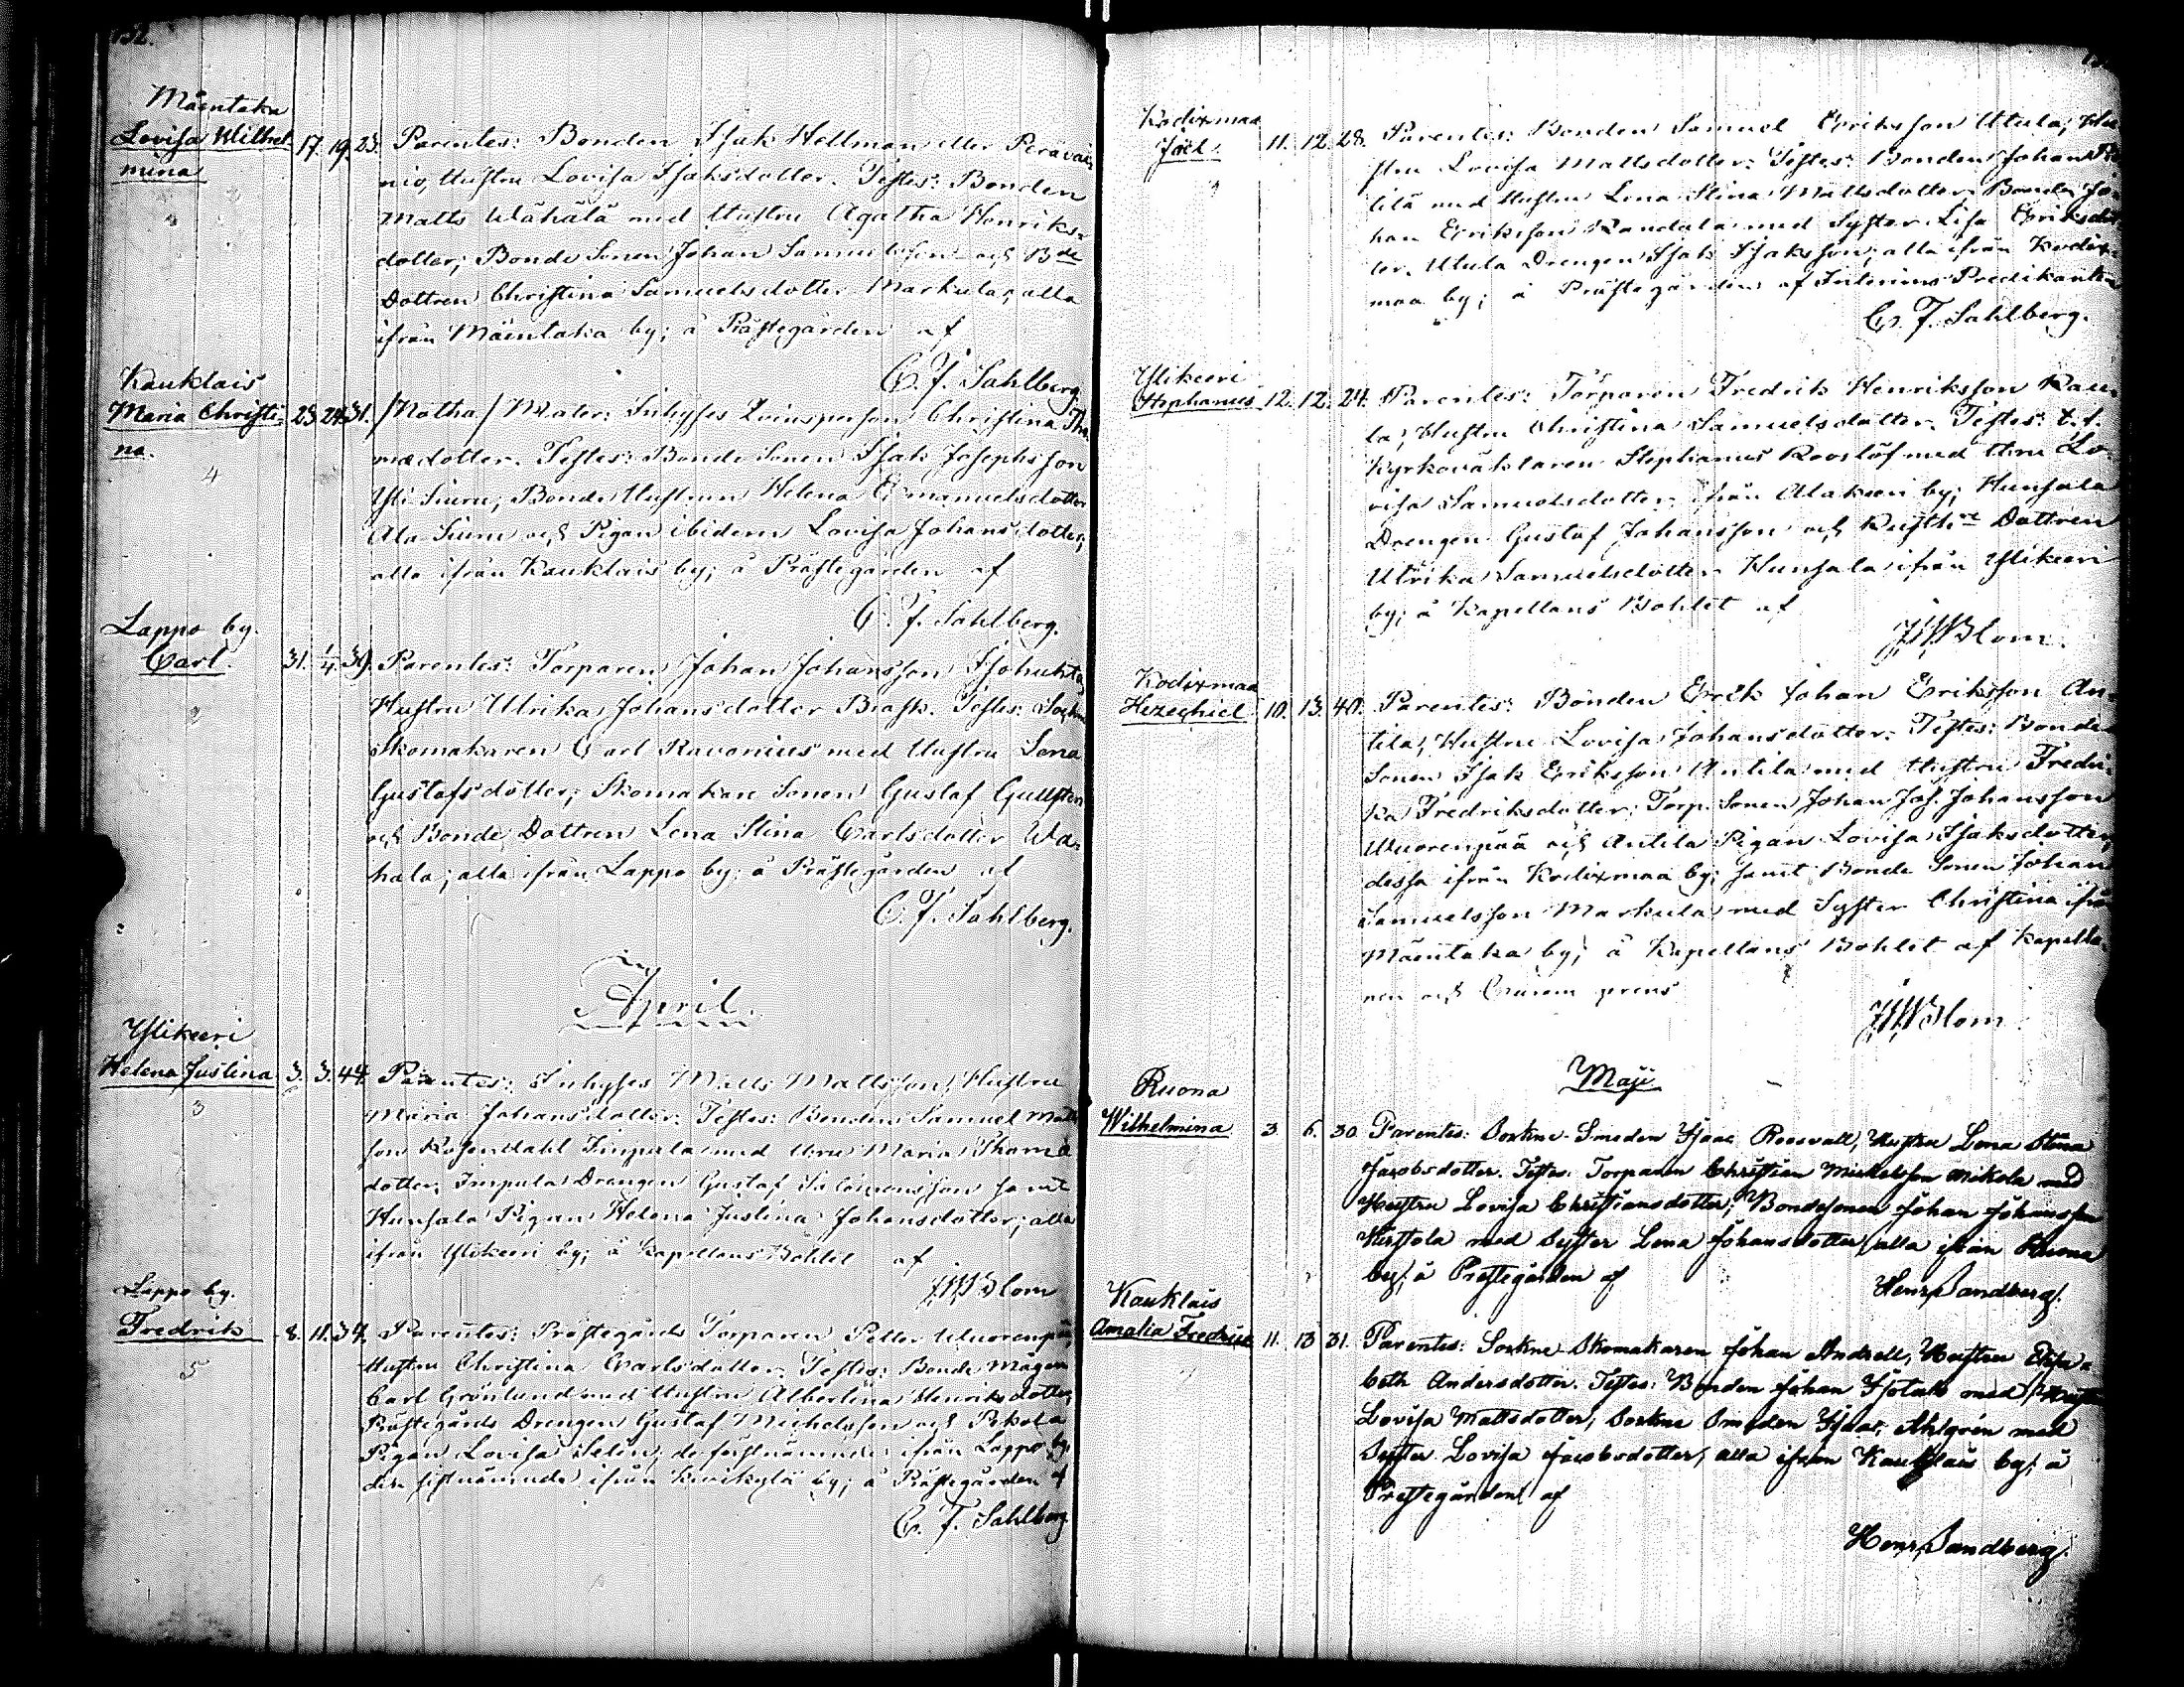 132.
Mäentaka
Lovisa Wilhel-
mina
17. 19. 23. Parentes: Bonden Isak Hellman eller Perävai-
nio, Hustru Lovisa Isaksdotter. Testes: Bonden
Matts Wähälä med Hustru Agatha Henriks-
dotter; Bonde Sonen Johan Samuelsson och Bde
Dottren Christina Samuelsdotter Markula, alla
ifrån Mäentaka by; å Prästegården af
C. F. Sahlberg.
Kauklais
Maria Christi-
na.
4
23. 24. 31. /Notha/ Mater: Inhyses Qvinsperson Christina Tho-
mædotter. Testes: Bonde Sonen Isak Josephsson
Yli Siuru; Bonde Hustrun Helena Emanuelsdotter
Ala Siuru och Pigan ibidem Lovisa Johansdotter,
alla ifrån Kauklais by; å Prästegården af
C. F. Sahlberg.
Lappo by.
Carl.
2
31. 1/4. 39. Parentes: Torparen Johan Johansson Isohuhta,
Hustru Ulrika Johansdotter Brask. Testes: Sockne
Skomakaren Carl Ravonius med Hustru Lena
Gustafsdotter; Skomakare Sonen Gustaf Gullsten
och Bonde Dottren Lena Stina Carlsdotter Wä-
hälä; alla ifrån Lappo by; å Prästegården af
C. F. Sahlberg.
April.
Ylikeeri
Helena Justina
3
3. 3. 44. Parentes: Inhyses Matts Mattsson, Hustru
Maria Johansdotter. Testes: Bonden Samuel Matts
son Rosendahl Simpula med Hru Maria Thomæ
dotter; Simpula Drengen Gustaf Salomonsson samt
Hunsala Pigan Helena Justina Johansdotter; alla
ifrån Ylikeeri by; å Kapellans Bohlet af
J. W. Blom
Lappo by.
Fredrik
5
8. 11. 34. Parentes: Prästegårds Torparen Petter Wuorenpää,
Hustru Christina Carlsdotter. Testes: Bonde Mågen
Carl Grönlund med Hustru Albertina Henriksdotter,
Prästegårds Drengen Gustaf Michelsson och Pekola
Pigan Lovisa Selin, de förstnämnde ifrån Lappo by,
den sistnämnde ifrån Kuoikylä by; å Prästegården af
C. F. Sahlberg
Kodixmaa
Joel.
11. 12. 28. Parentes: Bonden Samuel Eriksson Utula, Hu-
stru Lovisa Mattsdotter. Testes: Bonden Johan
tilä med Hustru Lena Stina Mattsdotter Bonden Jo-
han Eriksson Randala med Syster Lisa Eriksdot-
ter. Utula Drengen Isak Isaksson; alla ifrån Kodix-
maa by; å Prästegården af Interims Predikanten
C. F. Sahlberg.
Ylikeeri
Stephanus
12. 12. 24. Parentes: Torparen Fredrik Henriksson Rau-
la, Hustru Christina Samuelsdotter. Testes: t. f.
Kyrkoväktaren Stephanus Rooslöf med Hru Lo-
visa Samuelsdotter ifrån Alakeeri by; Hunsala
Drengen Gustaf Johansson och Rusth:re Dottren
Ulrika Samuelsdotter Hunsala ifrån Ylikeeri
by; å Kapellans Bohlet af
J. W. Blom.
Kodixmaa
Hezechiel
10. 13. 40. Parentes: Bonden Erik Johan Eriksson An-
tila, Hustru Lovisa Johansdotter. Testes: Bonde
Sonen Isak Eriksson Antila med Hustru Fredri-
ka Fredriksdotter; Torp. Sonen Johan Jos. Johansson
Wuorenpää och Antila Pigan Lovisa Isaksdotter,
dessa ifrån Kodixmaa by; samt Bonde Sonen Johan
Samuelsson Markula med Syster Christina ifrån
Mäentaka by; å Kapellans Bohlet af Kapella-
nen och
J. W. Blom.
Maji
Ruona
Wilhelmina
3. 6. 30. Parentes: Sockne-Smeden Isaac Roosvall, Hustru Lena Stina
Jacobsdotter. Testes: Torparen Christian Mickelsson Mikola med
Hustru Lovisa Christiansdotter; Bondesonen Johan Johansson
Hirstola med Syster Lena Johansdotter, alla ifrån Ruona
by; å Prestegården af
Henr. Sandberg.
Kauklais
Amalia Fredrica
11. 13. 31. Parentes: Sockne-Skomakaren Johan Andsell, Hustru Elisa-
beth Andersdotter. Testes: Bonden Johan Isotalo med Hustru
Lovisa Mattsdotter, Sockne Smeden Isaac Ahlgrén med
Syster Lovisa Jacobsdotter, alla ifrån Kauklais by; å
Prestegården af
Henr. Sandberg.